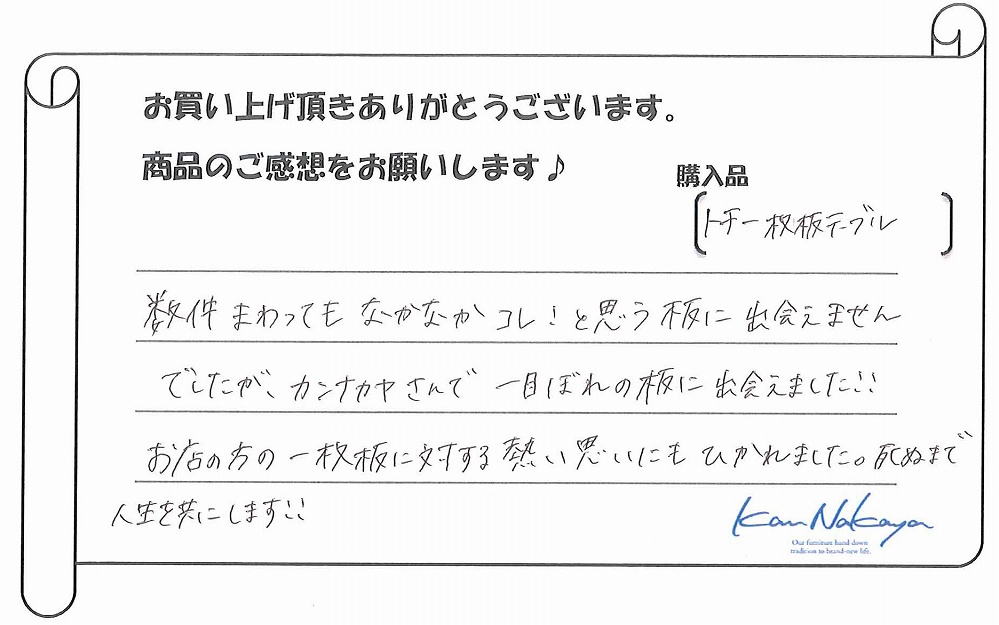 お買い上げ頂きありがとうございます。
商品のご感想をお願いします♪
購入品
トチ一枚板テーブル
数件まわってもなかなかコレ!と思う板に出会えません
でしたが、カンナカヤさんで一目ぼれの板に出会えました!!
お店の方の一枚板に対する熱い思いにもひかれました。死ぬまで
人生を共にします!!
Kan Nakaya
Our furniture hand down
tradition to brand-new life.